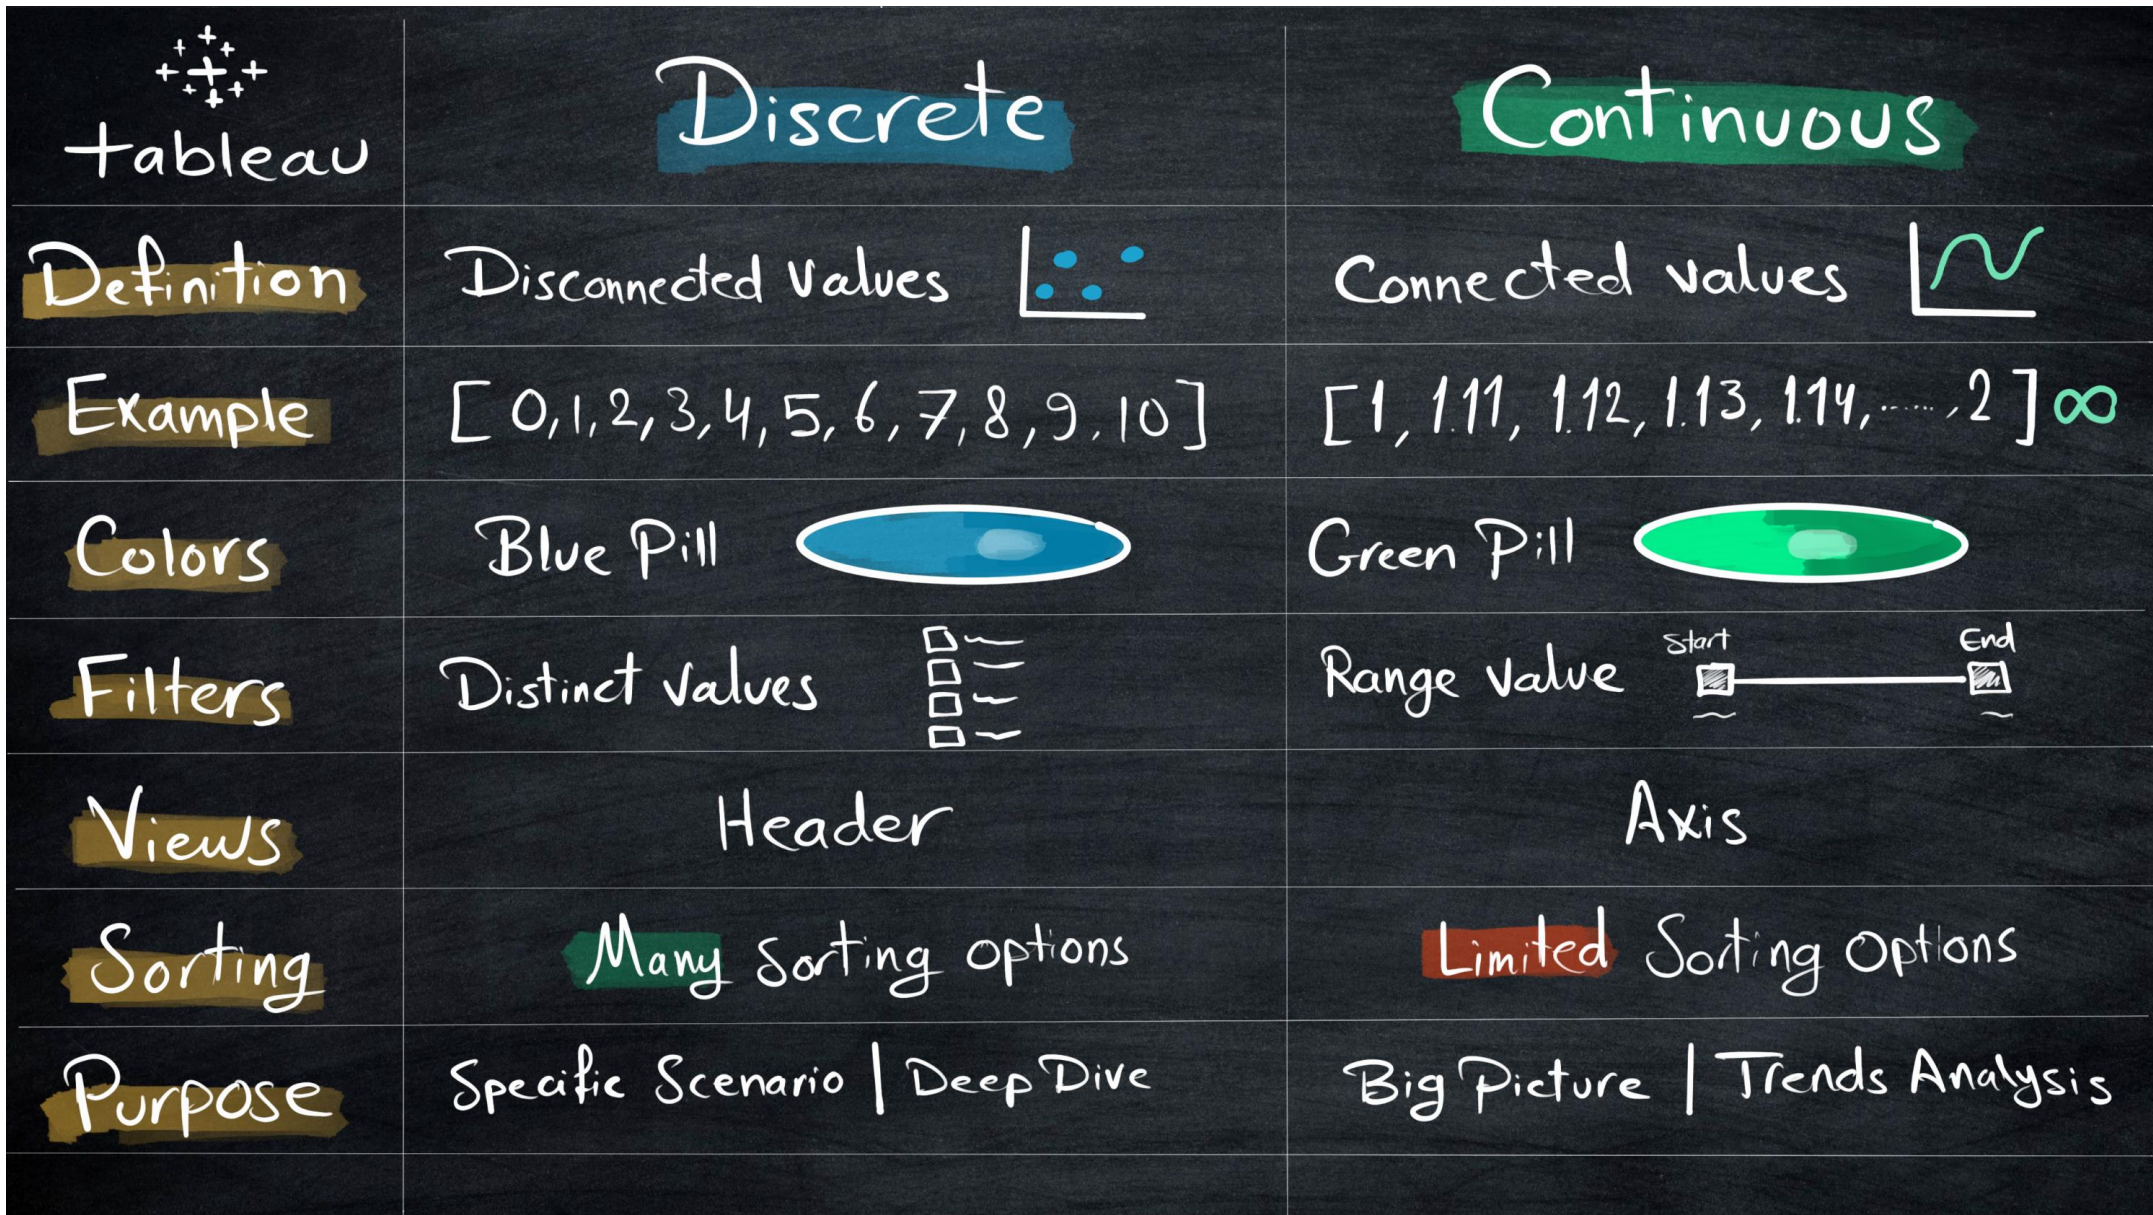 tableau
Discrete
Continuous
Definition
Disconnected Values
Connected values
Example
[ 0,1,2,3,4,5,6,7,8,9,10 ]
[1, 1.11, 1.12, 1.13, 1.14,......,2 ] ∞
Colors
Blue Pill
Green Pill
Filters
Distinct values
Range value
Start
End
Views
Header
Axis
Sorting
Many Sorting options
Limited Sorting Options
Purpose
Specific Scenario | Deep Dive
Big Picture | Trends Analysis